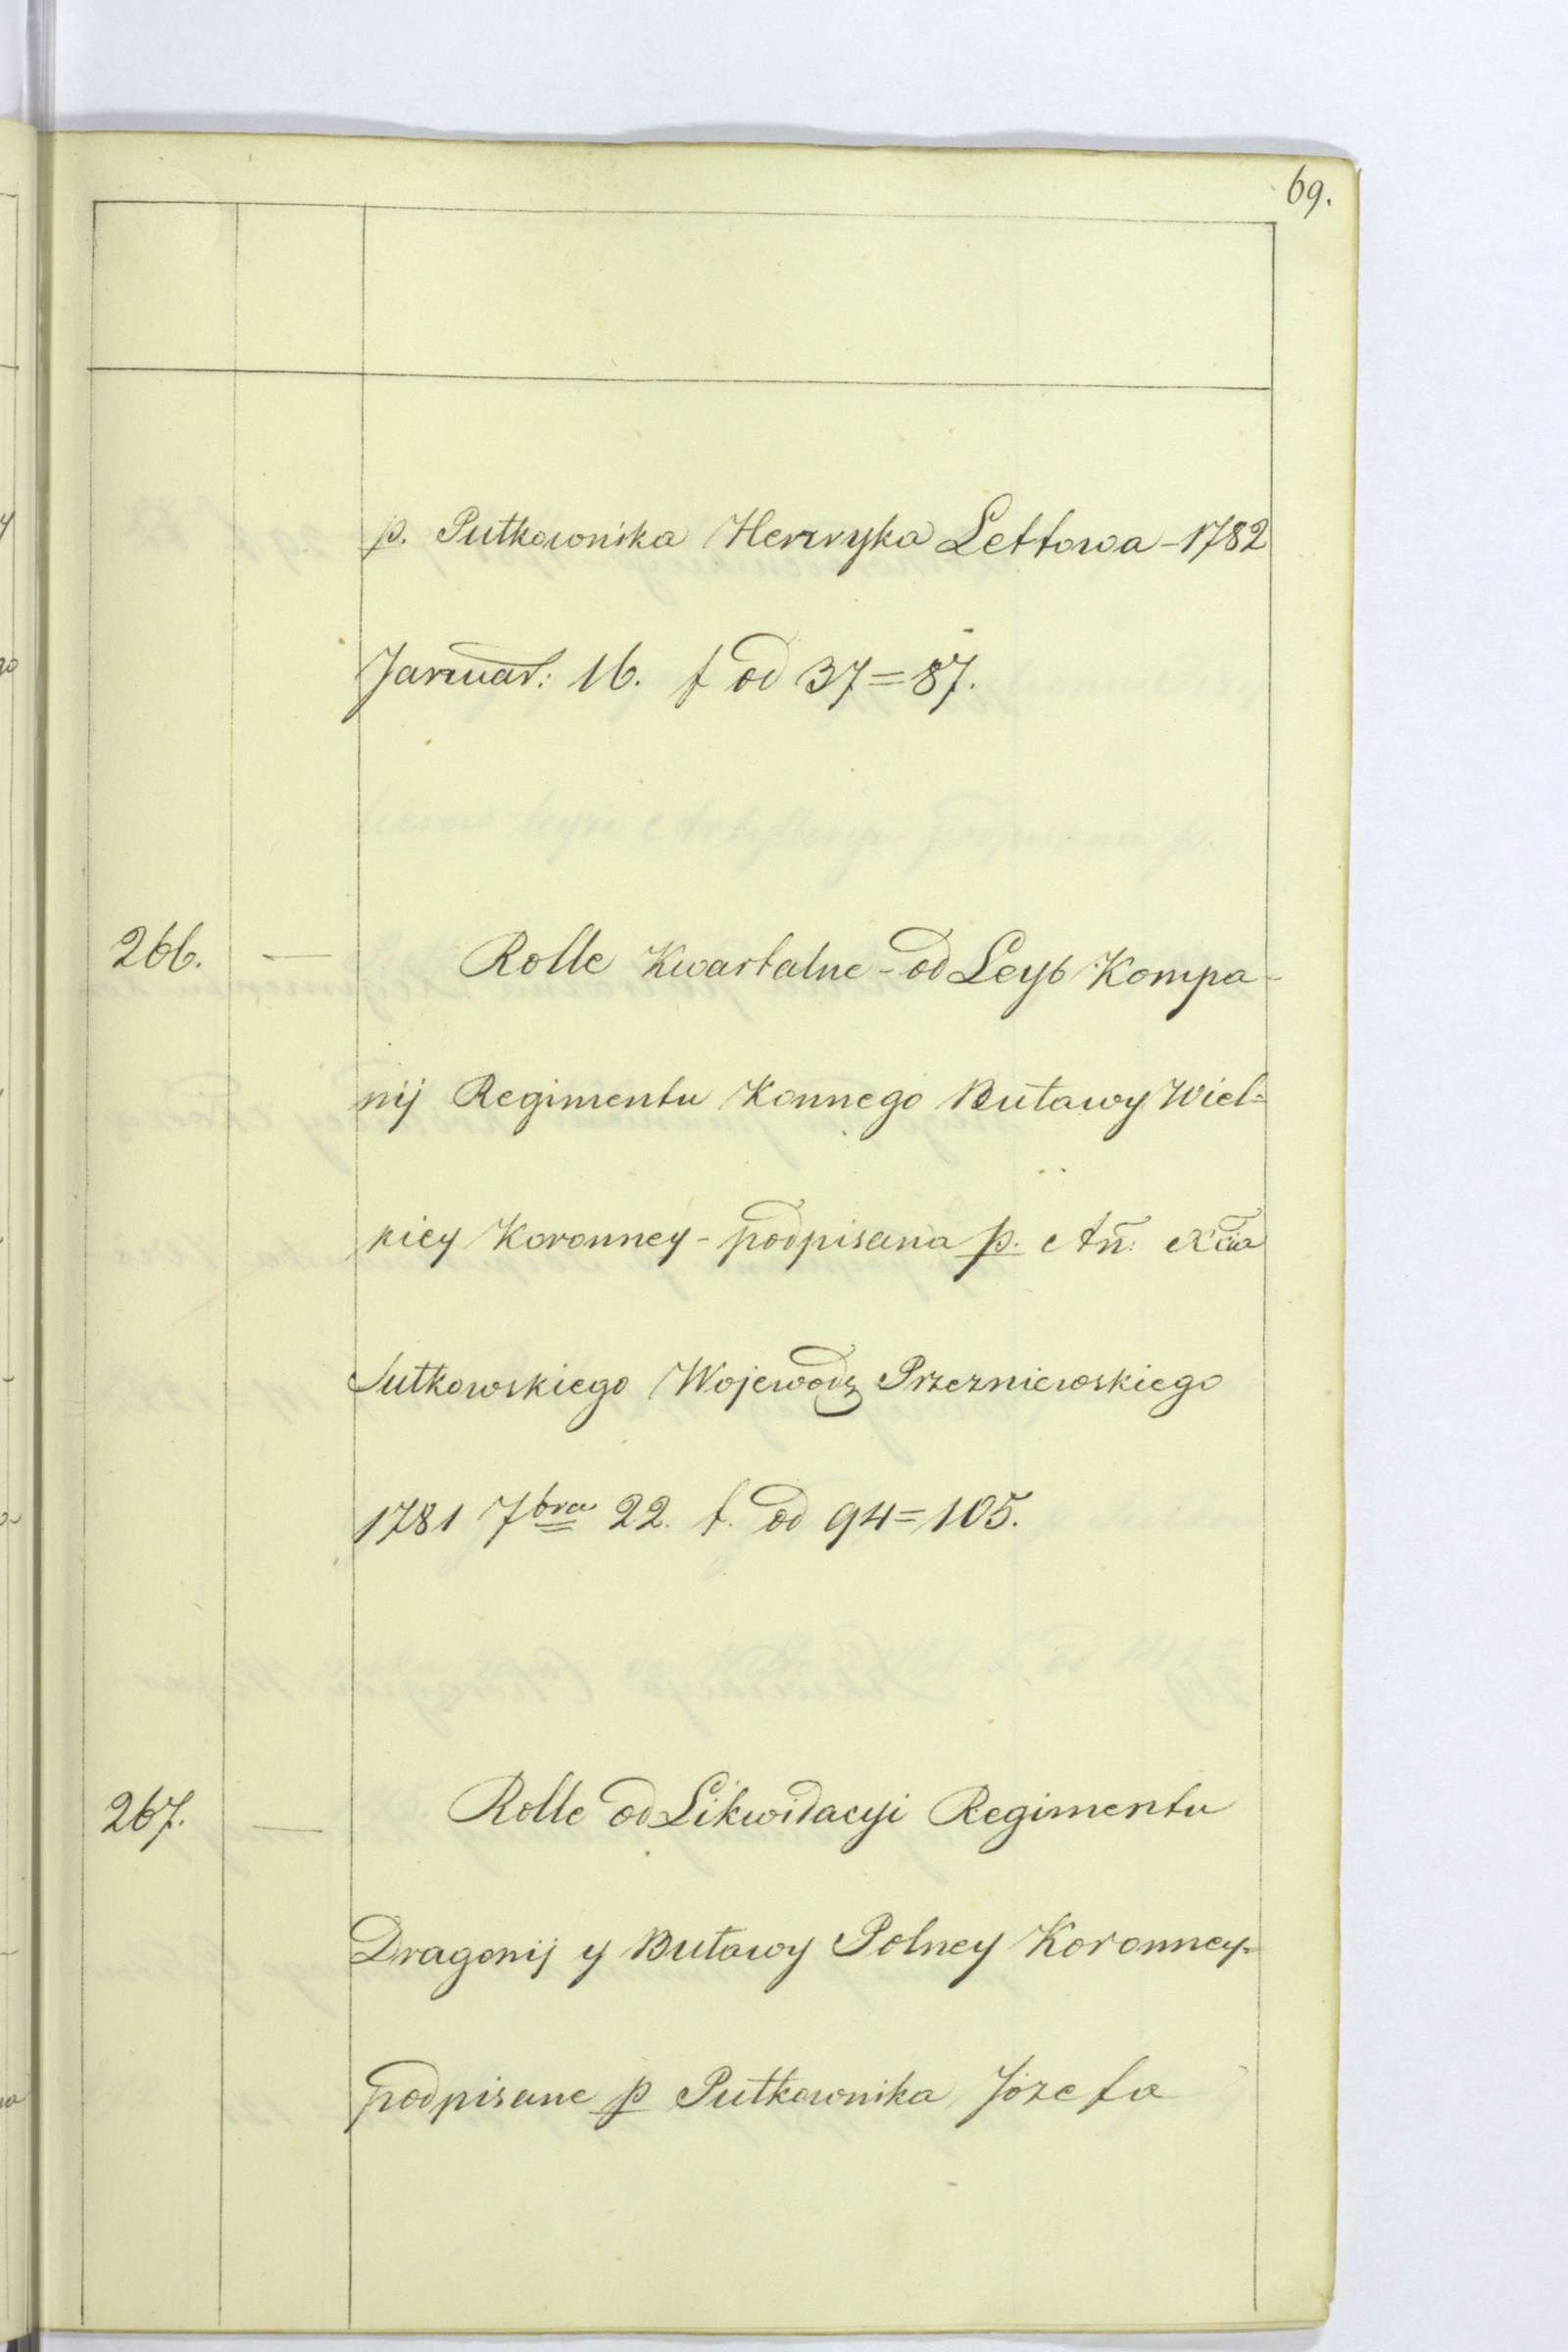 69.
p. Pułkownika Henryka Lettowa - 1782
Januar: 16. f od 37 = 87.
266. — Rolle Kwartalne - od Leyb Kompa-
nij Regimentu Konnego Buławy Wiel=
kiey Koronney - podpisana p. An: Xcia
Sułkowskiego Wojewodz Przezniewskiego
1781 7bra 22. f. od 94 = 105.
267. — Rolle od Likwidacyi Regimentu
Dragonij y Buławy Polney Koronney=
podpisane p Pułkownika Józefa